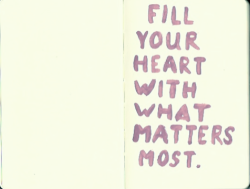 FILL
YOUR
HEART
WITH
WHAT
MATTERS
MOST.